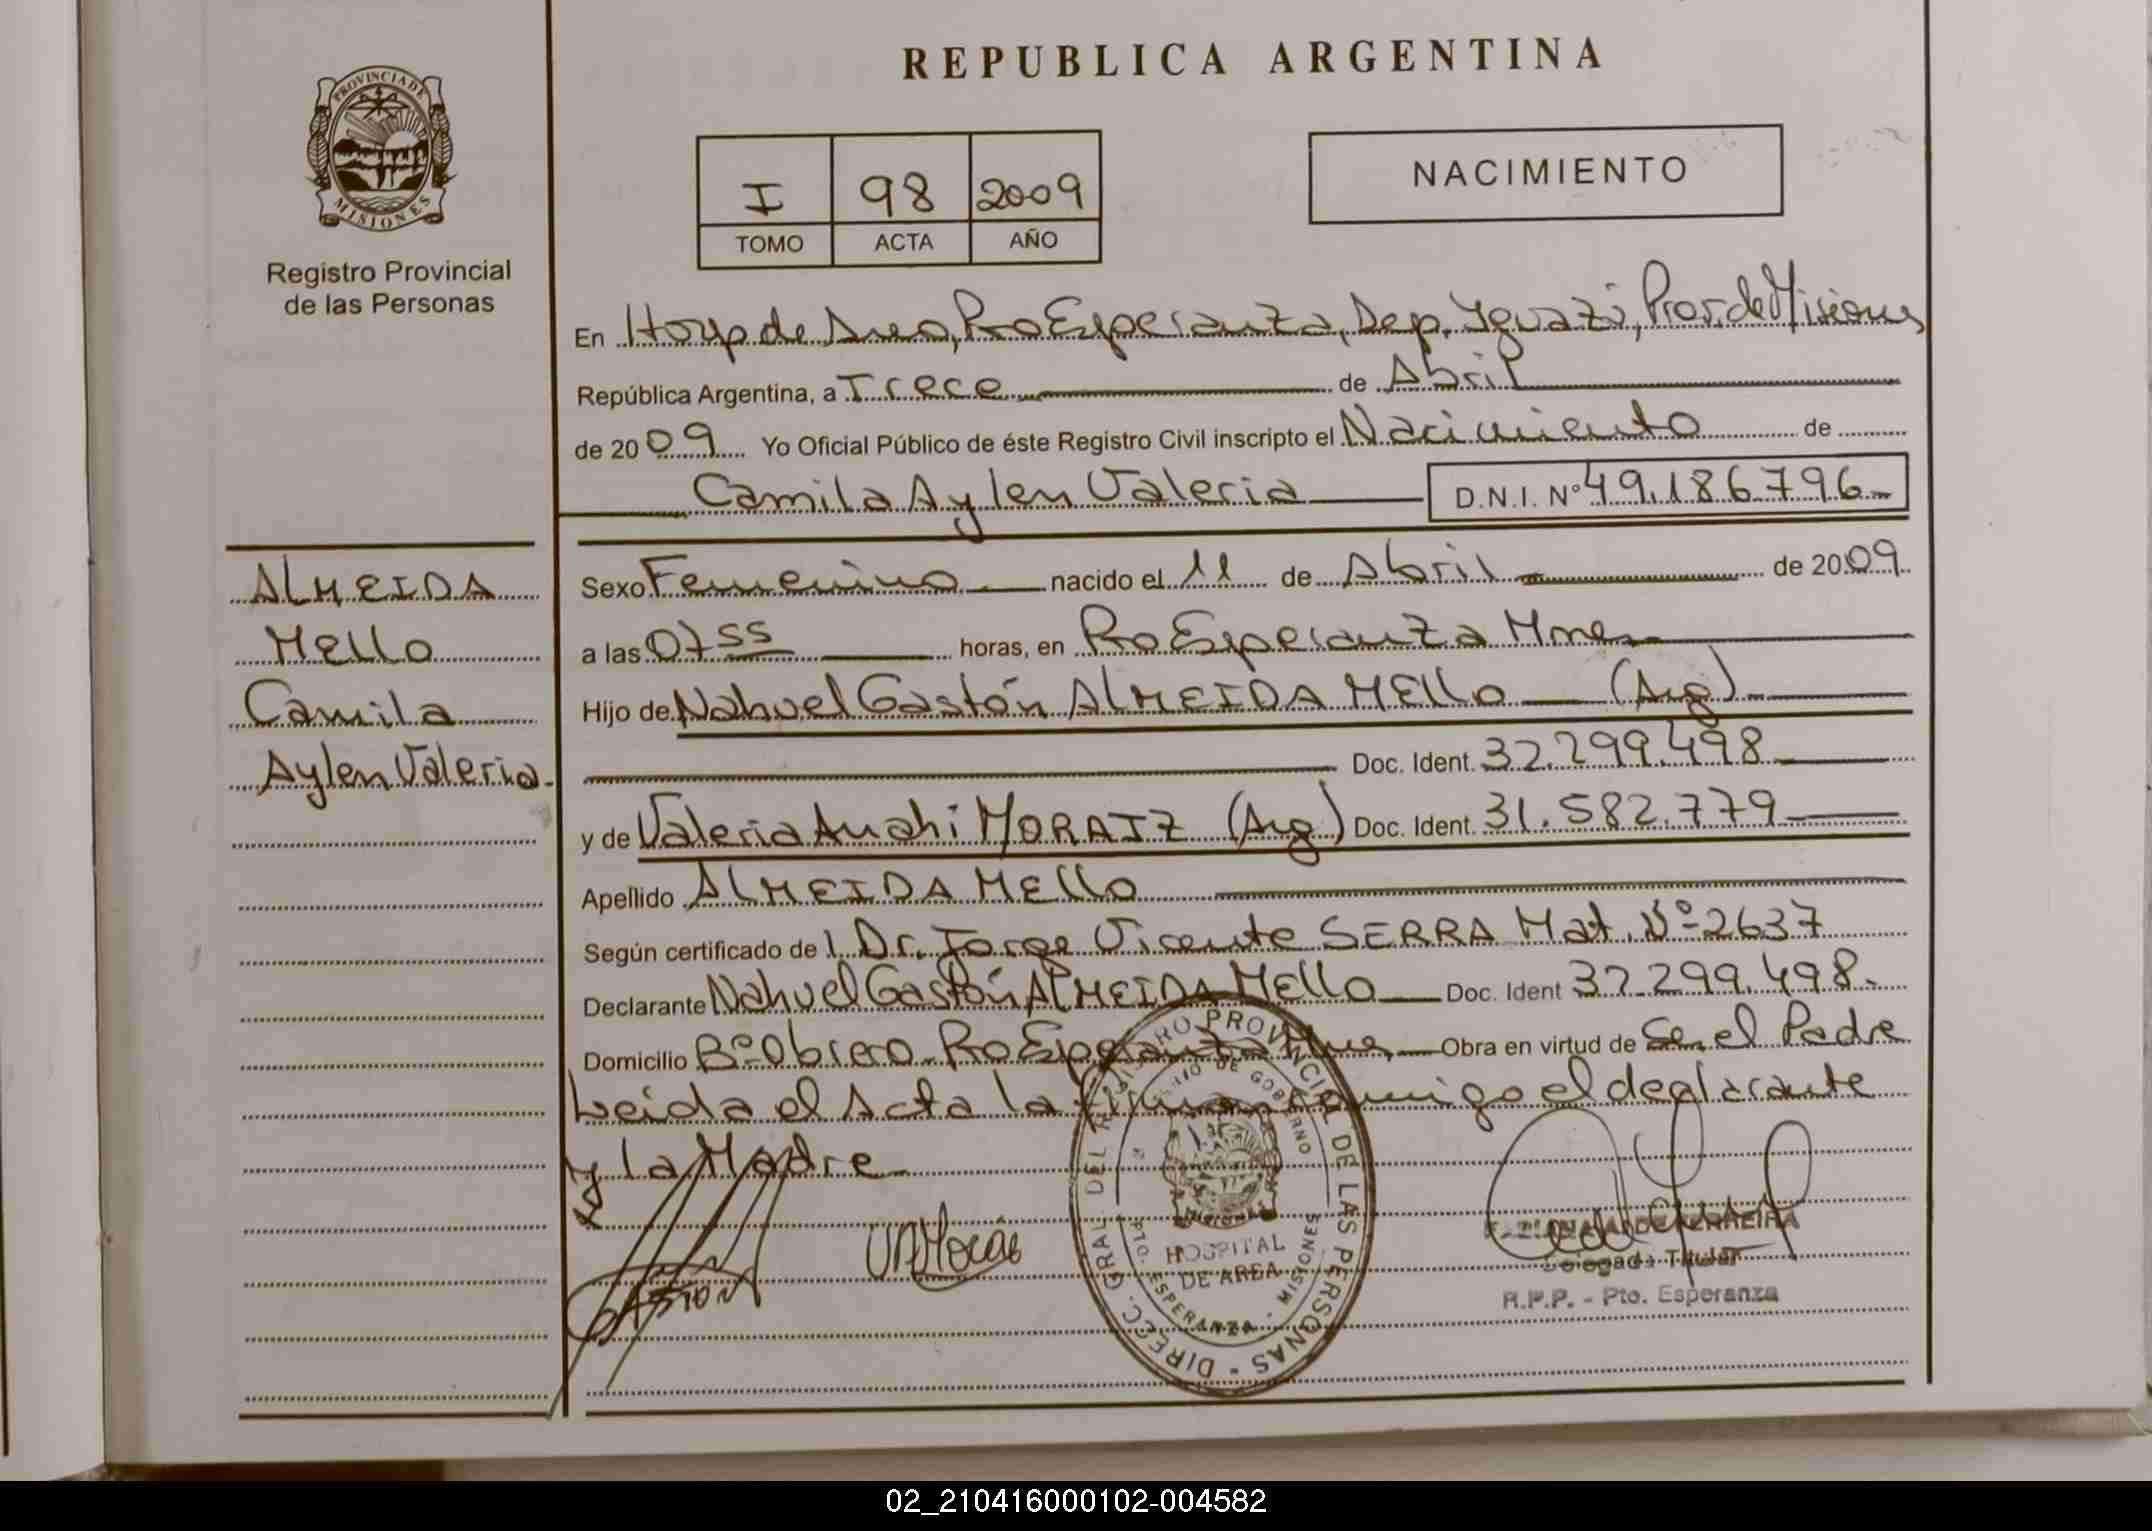 REPUBLICA ARGENTINA
PROVINCIA DE MISIONES
Registro Provincial
de las Personas
I 98 2009
TOMO ACTA AÑO
NACIMIENTO
En Hosp de Area, Pto Esperanza, Dep. Yguazú, Prov. de Misiones
República Argentina, a Trece de Abril
de 2009 Yo Oficial Público de éste Registro Civil inscripto el Nacimiento de
Camila Aylen Valeria D.N.I. Nº 49.186796
ALMEIDA
Mello
Camila
Aylen Valeria.
Sexo Femenino nacido el 11 de Abril de 2009
a las 07 55 horas, en Pto Esperanza Mnes
Hijo de Nahuel Gastón ALMEIDA MELLO (Arg)
Doc. Ident. 32.299.498
y de Valeria Anahi MORAIZ (Arg) Doc. Ident. 31.582.779
Apellido ALMEIDA MELLO
Según certificado de Dr. Jorge Vicente SERRA Mat. Nº 2637
Declarante Nahuel Gastón ALMEIDA MELLO Doc. Ident 32.299.498.
Domicilio Bº Obrero Pto Esperanza Obra en virtud de Ser el Padre
Leida el Acta la firman conmigo el declarante
y la Madre
GASTON
DIRECC. GRAL. DEL REGISTRO PROVINCIAL DE LAS PERSONAS
DE GOBIERNO
HOSPITAL
DE AREA
PTO. ESPERANZA - MISIONES
DE FERREIRA
Delegada Titular
R.P.P. - Pto. Esperanza
02_210416000102-004582